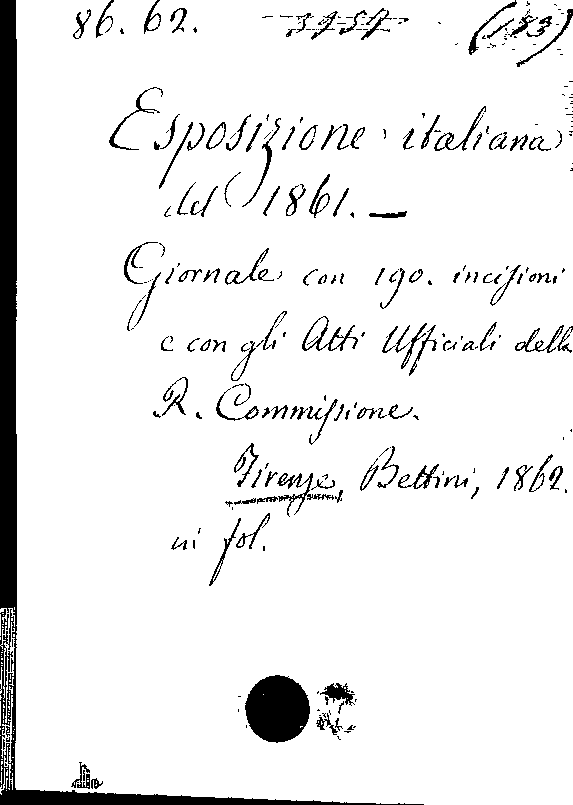 86. 62. 3957 (183)
Esposizione italiana
del 1861. —
Giornale con 190. incisioni
e con gli Atti Ufficiali della
R. Commissione.
Firenze, Bettini, 1862.
in fol.